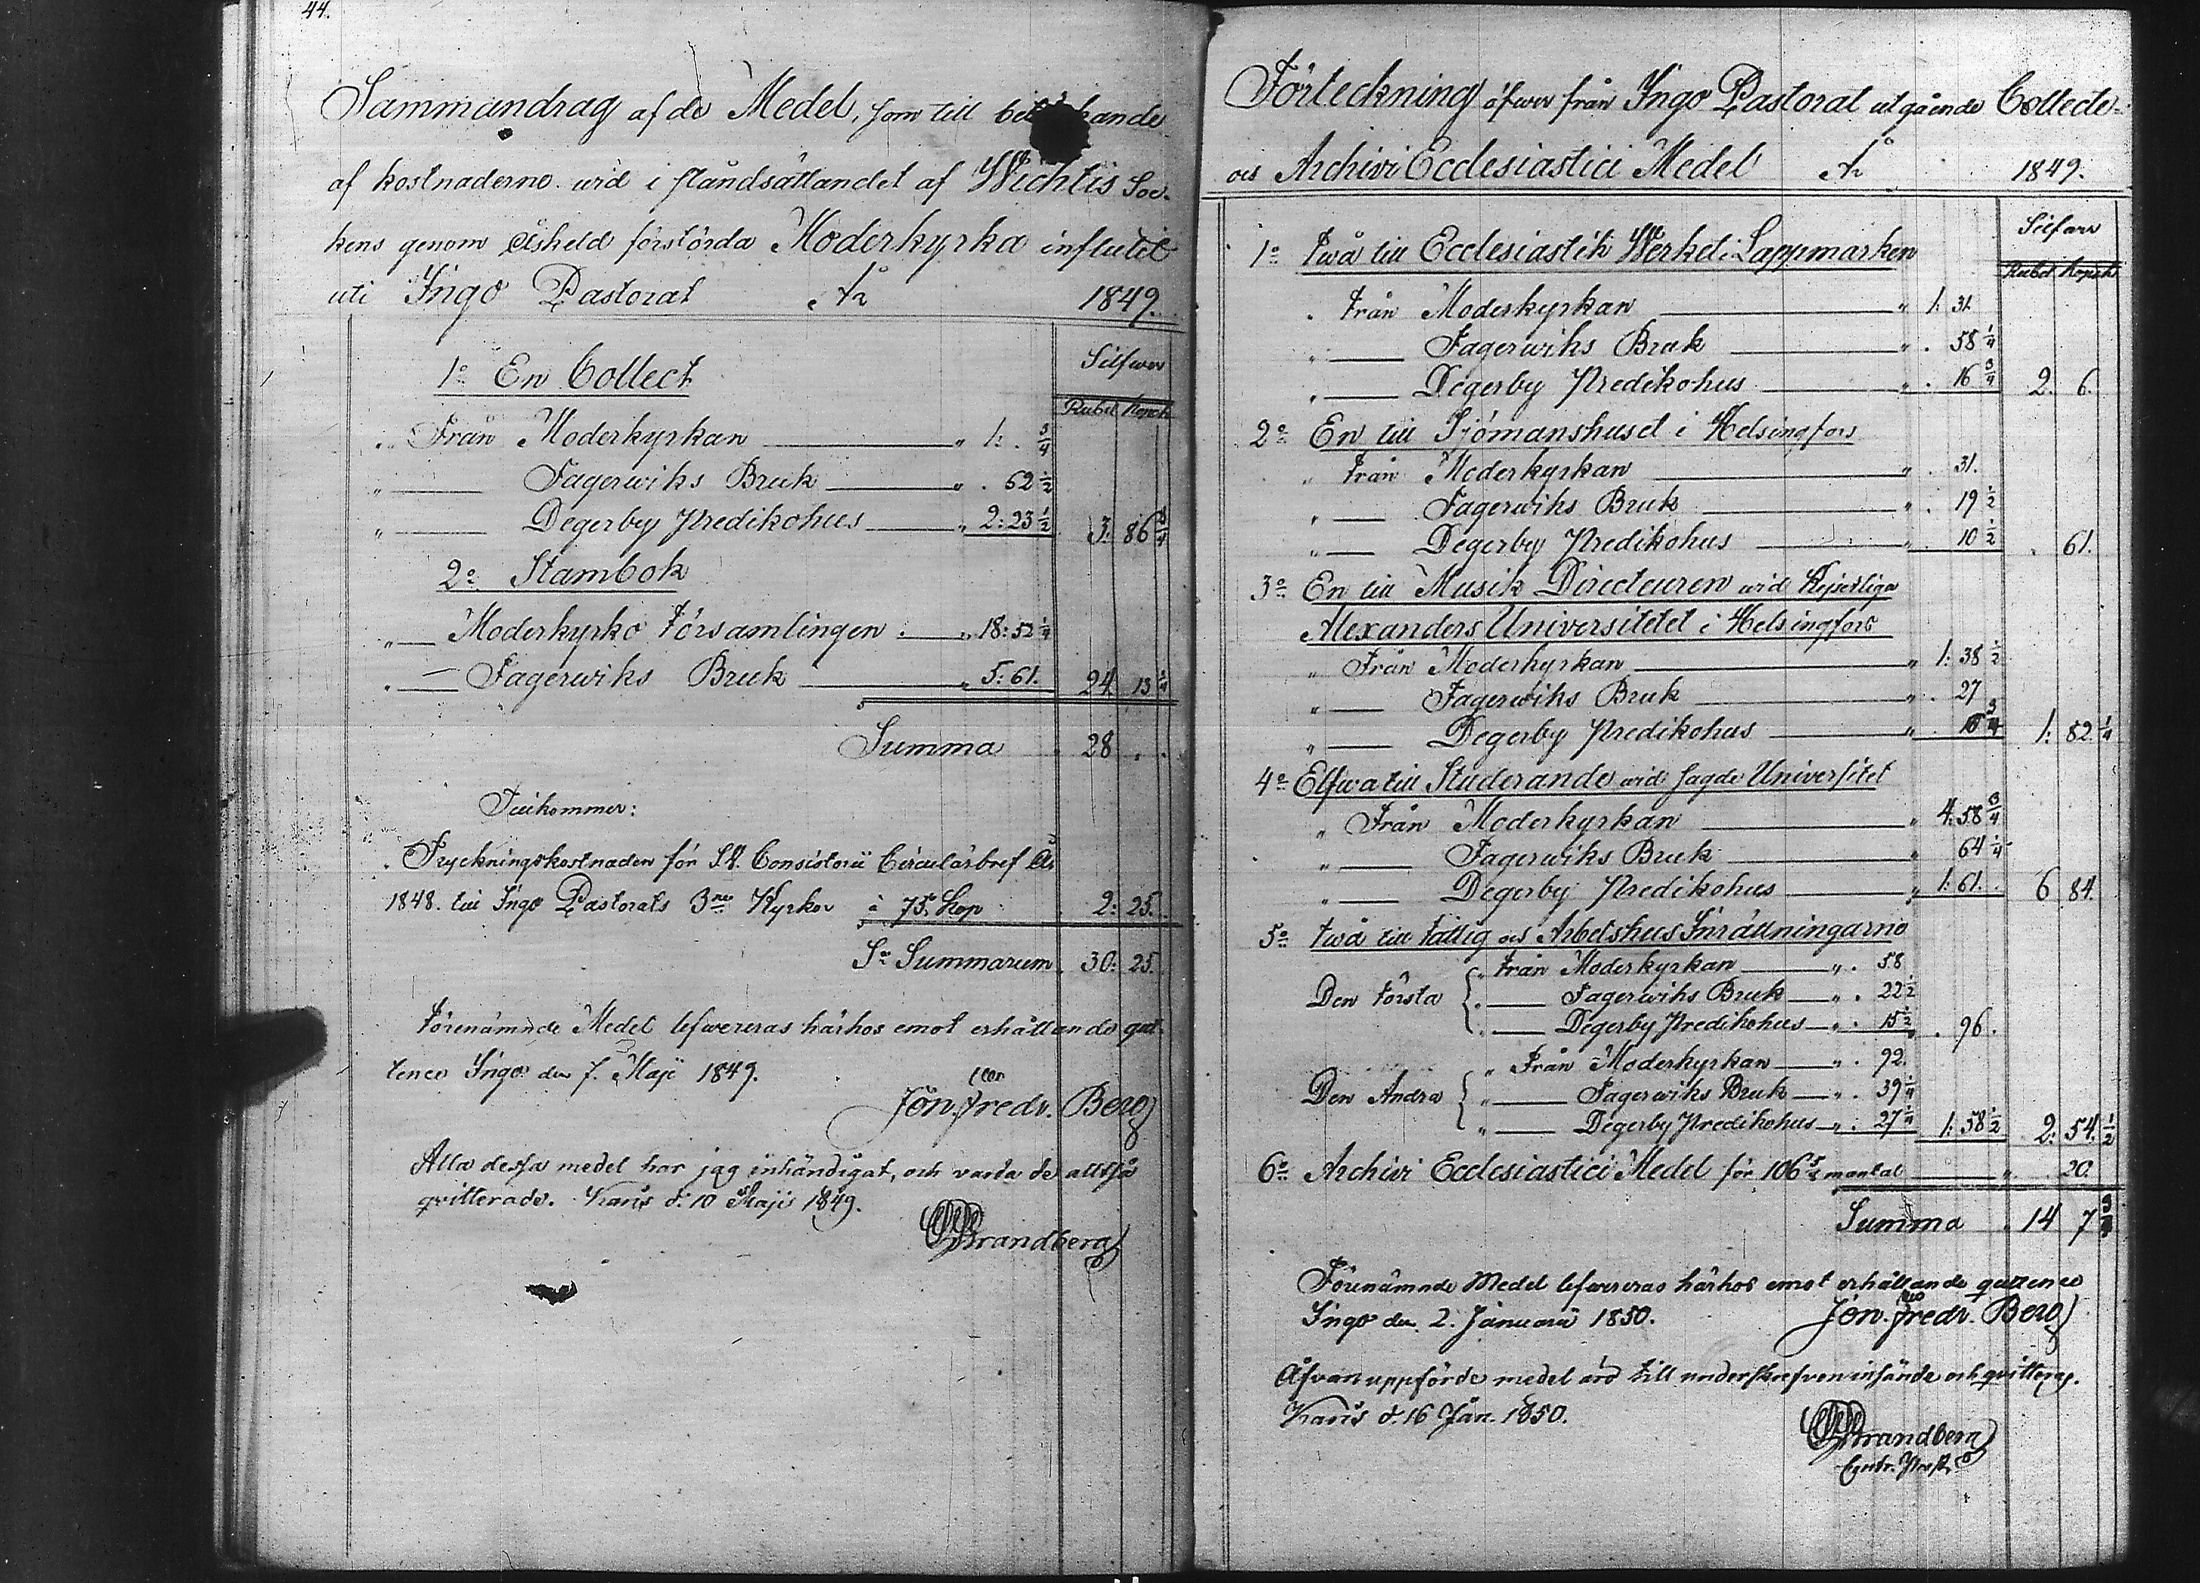 44.
Sammandrag af de Medel, som till be kande
af kostnaderne wid i ståndsättandet af Wichtis Soc-
kens genom åskeld förstörda Moderkyrka influtit
uti Ingo Pastorat År 1849.
Silfwer
Rubel Kopek
1o En Collect
" Från Moderkyrkan " 1: . 3/4
" Fagerwiks Bruk " . 62 1/2
" Degerby Predikohus " 2: 23 1/2 3: 86 3/4
2o Stambok
" Moderkyrko Församlingen " 18: 52 1/4
" Fagerwiks Bruk " 5: 61. 24. 13 1/4
Summa 28 . .
Tillkommer:
Tryckningskostnaden för Consistorii Circulärbref År
1848. till Ingo Pastorats 3ne Kyrkor à 75. Kop 2: 25.
Sa Summarum 30: 25.
Förenämnde Medel lefwereras härhos emot erhållande qut-
tence Ingo den 7. Maji 1849.
Jon. Fredr. Berg
Alla dessa medel har jag inhändigat, och varda de alltså
qvitterade. Karis d. 10 Maji 1849.
Strandberg
Förteckning öfwer från Ingo Pastorat utgående Collecte-
och Archivi Ecclesiastici Medel År 1849.
Silfwer
Rubel Kopek
1o Twå till Ecclesiastik Werket i Lappmarken
" Från Moderkyrkan " 1: 31.
" Fagerwiks Bruk " . 58 1/4
" Degerby Predikohus " . 16 3/4 2. 6.
2o En till Sjömanshuset i Helsingfors
" Från Moderkyrkan " . 31.
" Fagerwiks Bruk " . 19 1/2
" Degerby Predikohus " . 10 1/2 . 61.
3o En till Musik Directeuren wid Kejserliga
Alexanders Universitetet i Helsingfors
" Från Moderkyrkan " 1: 38 1/2
" Fagerwiks Bruk " . 27
" Degerby Predikohus " 1: 82 1/4
4o Elfwa till Studerande wid sagde Universitet
" Från Moderkyrkan " 4: 58 3/4
" Fagerwiks Bruk " 64 1/4
" Degerby Predikohus " 1: 61. 6 84.
5o Twå till Fattig och Arbetshus Inrättningarne
" Från Moderkyrkan " . 58
Den Första " Fagerwiks Bruk " . 22 1/2
" Degerby Predikohus " . 15 1/2 . 96.
" Från Moderkyrkan " . 92.
Den Andra " Fagerwiks Bruk " . 39 1/4
" Degerby Predikohus " . 27 1/4 1: 58 1/2 2: 54. 1/2
6o Archivi Ecclesiastici Medel för 106 mantal " . 20.
Summa . 14 7 3/4
Förenämnde Medel lefwereras härhos emot erhållande quttence
Ingo den 2. Januarii 1850. Jon. Fredr. Berg
Åfvanuppförde medel äro till underskrefven insände och qvitteras.
Karis d. 16 Jan. 1850.
Strandberg
Contr. Prost